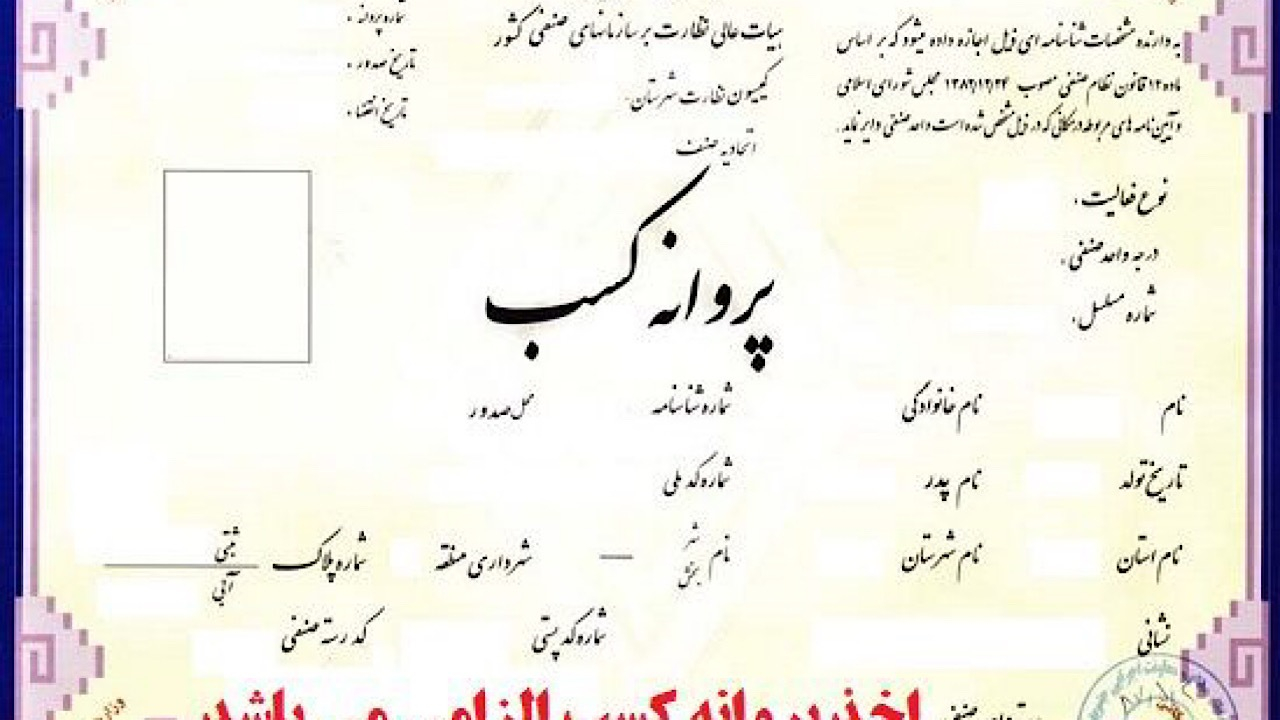 به دارنده مشخصات شناسنامه ای ذیل اجازه داده میشود که بر اساس
ماده ۱۲ قانون نظام صنفی مصوب ۱۳۸۲/۱۲/۲۴ مجلس شورای اسلامی
و آیین نامه های مربوطه در مکانی که در ذیل مشخص شده است واحد صنفی دایر نماید.
هیات عالی نظارت بر سازمانهای صنفی کشور
کمیسیون نظارت شهرستان:
اتحادیه صنف
شماره پروانه:
تاریخ صدور:
تاریخ انقضاء:
نوع فعالیت:
درجه واحد صنفی:
شماره مسلسل:
پروانه کسب
نام نام خانوادگی شماره شناسنامه محل صدور
تاریخ تولد نام پدر شماره کد ملی
نام استان نام شهرستان نام شهر بخش — شهرداری منطقه شماره پلاک ثبتی آبی
نشانی شماره کد پستی کد رسته صنفی
اخذ پروانه کسب الزامی می باشد